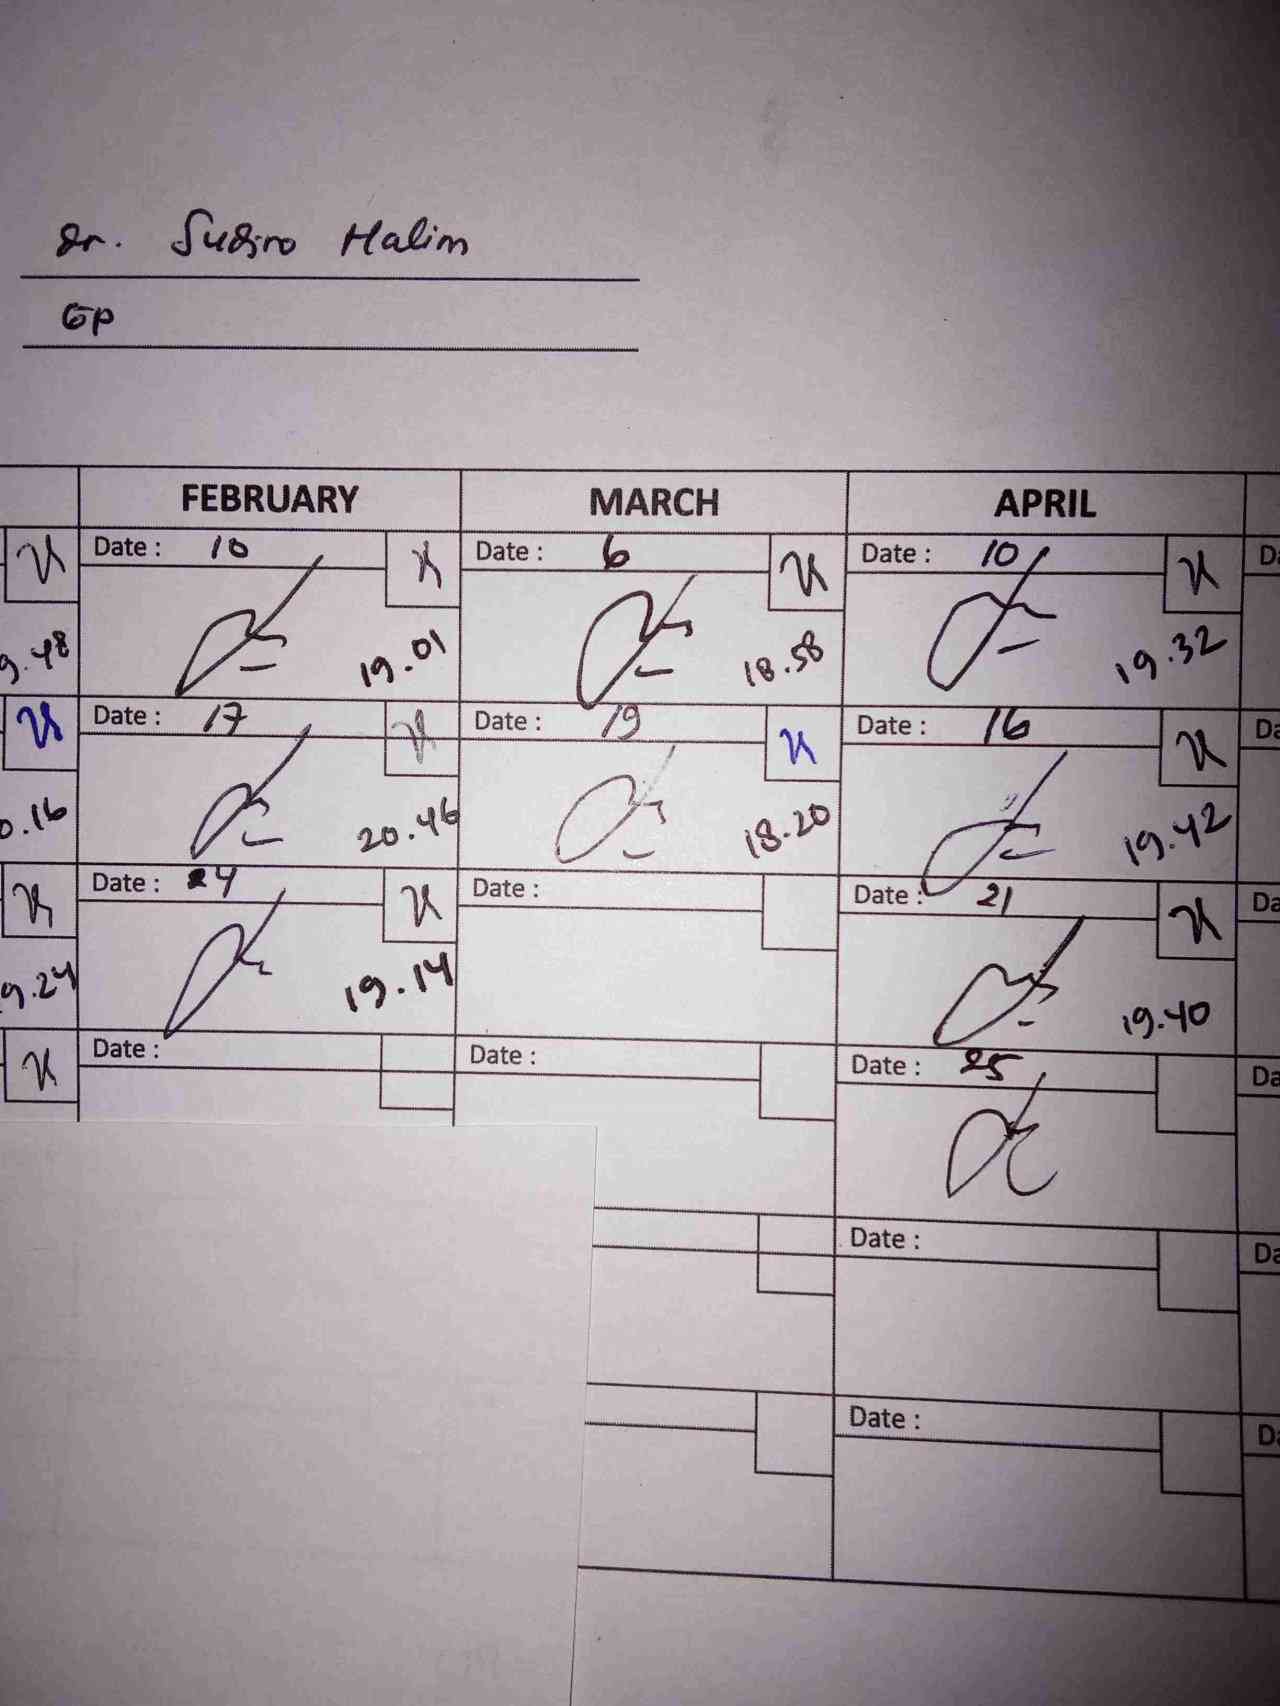 dr. Sudiro Halim
GP
FEBRUARY MARCH APRIL
Date : 10 Date : 6 Date : 10
9.48 19.01 18.58 19.32
Date : 17 Date : 19 Date : 16
0.16 20.46 18.20 19.42
Date : 24 Date : Date : 21
9.24 19.14 19.40
Date : Date : Date : 25
Date :
Date :